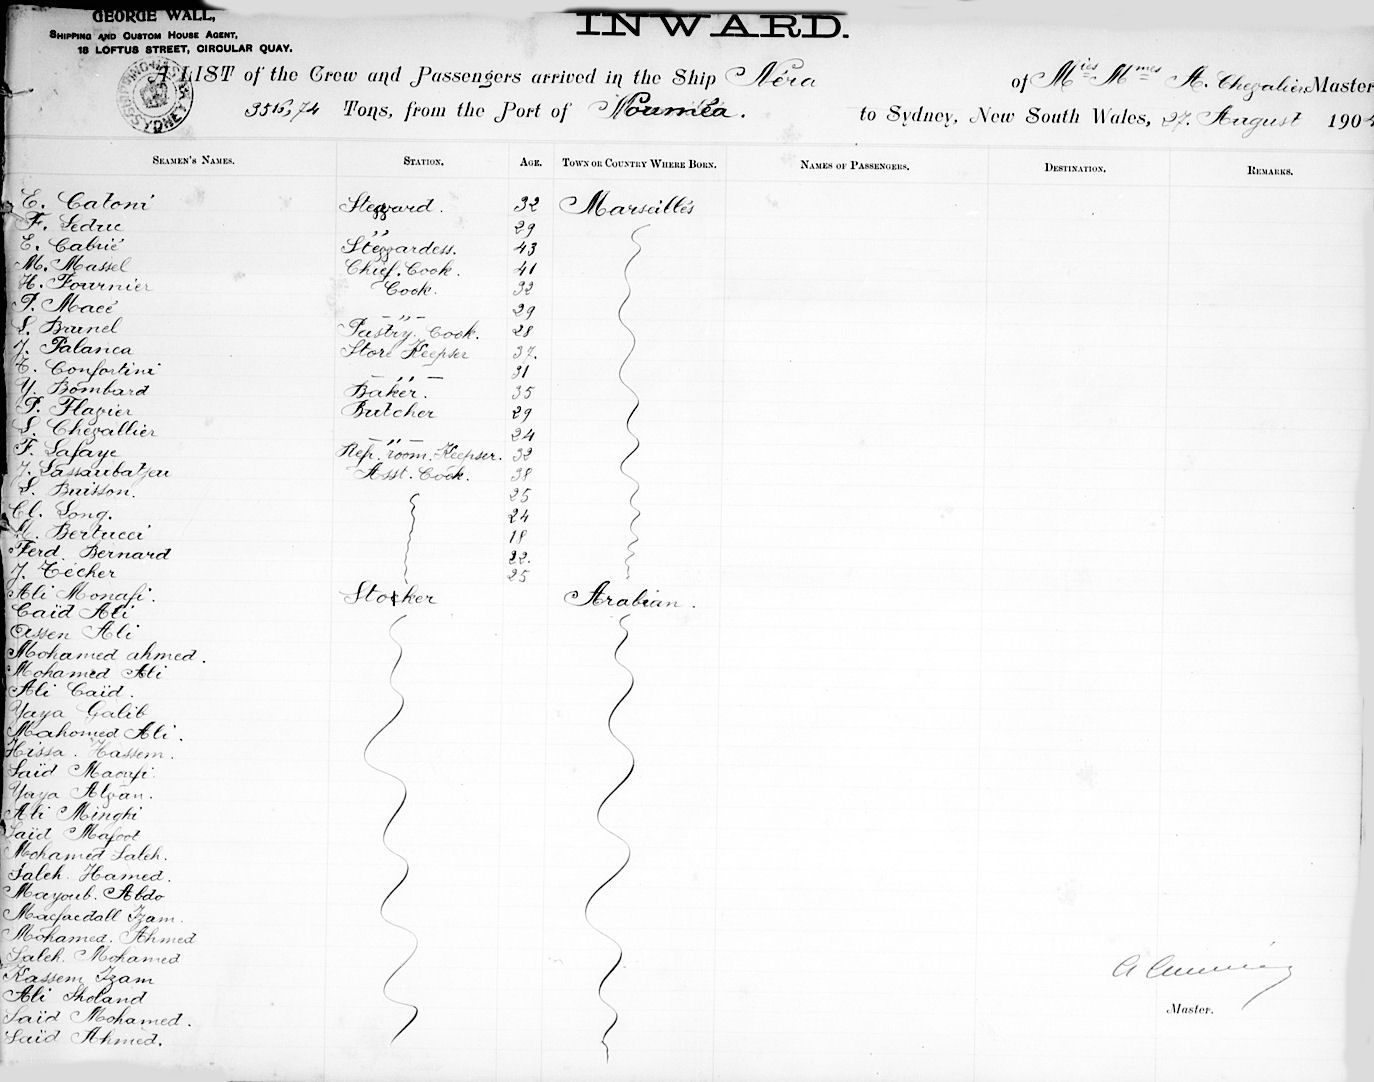 GEORGE WALL,
SHIPPING AND CUSTOM HOUSE AGENT,
18 LOFTUS STREET, CIRCULAR QUAY.
INWARD.
A LIST of the Crew and Passengers arrived in the Ship Néra of Mies Mmes A. Chevalier Master
3516,74 Tons, from the Port of Nouméa. to Sydney, New South Wales, 27. August 1904
SEAMEN'S NAMES. STATION. AGE. TOWN OR COUNTRY WHERE BORN. NAMES OF PASSENGERS. DESTINATION. REMARKS.
E. Catoni Steward. 32 Marseilles
F. Ledruc ,, 29
E. Cabrié Stewardess. 43
M. Massel Chief. Cook. 41
H. Fournier Cook. 32
P. Macé —,,— 29
S. Brunel Pastry. Cook. 28
J. Palanca Store Keeper 37.
T. Confortini —,,— 31
Y. Bombard Baker. 35
P. Flavier Butcher 29
S. Chevallier —,,— 24
F. Lafaye Ref. room. Keeper. 32
J. Lassaubatjeu Asst. Cook. 38
S. Buisson. 25
Cl. Long. 24
Bertucci 18
Ferd. Bernard 22.
J. Técher 25
Ali Monasi. Stoker Arabian.
Caïd Ali
Assen Ali
Mohamed ahmed.
Mohamed Ali
Ali Caïd.
Yaya Galib
Mahomed Ali.
Hissa. Hassem.
Saïd Maousi
Yaya Alvan.
Ali Minghi
Saïd Mafoot
Mohamed Saleh.
Saleh. Hamed.
Mayoub. Abdo
Izam.
Mohamed. Ahmed
Saleh. Mohamed
Kassem Izam
Ali Sholand
Saïd Mohamed.
Saïd Ahmed.
Master.